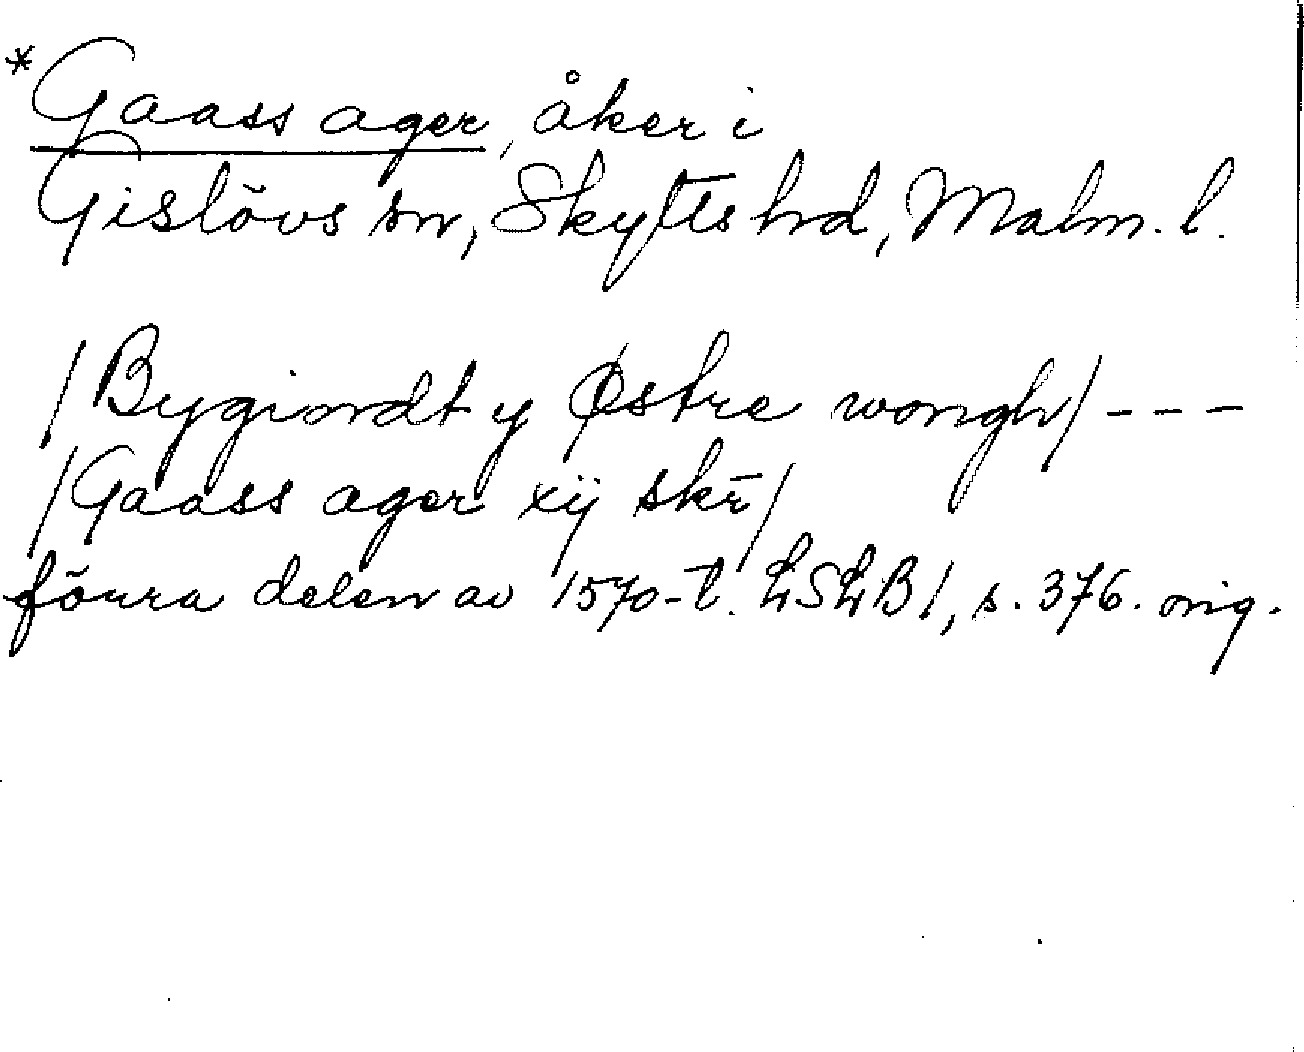 *Gaass ager, åker i
Gislövs sn, Skytts hd, Malm. l.
/Bygiordt y Østre wongh/ - - -
/Gaass ager xij skr/
förra delen av 1570-t. LSLB 1, s. 376. orig.